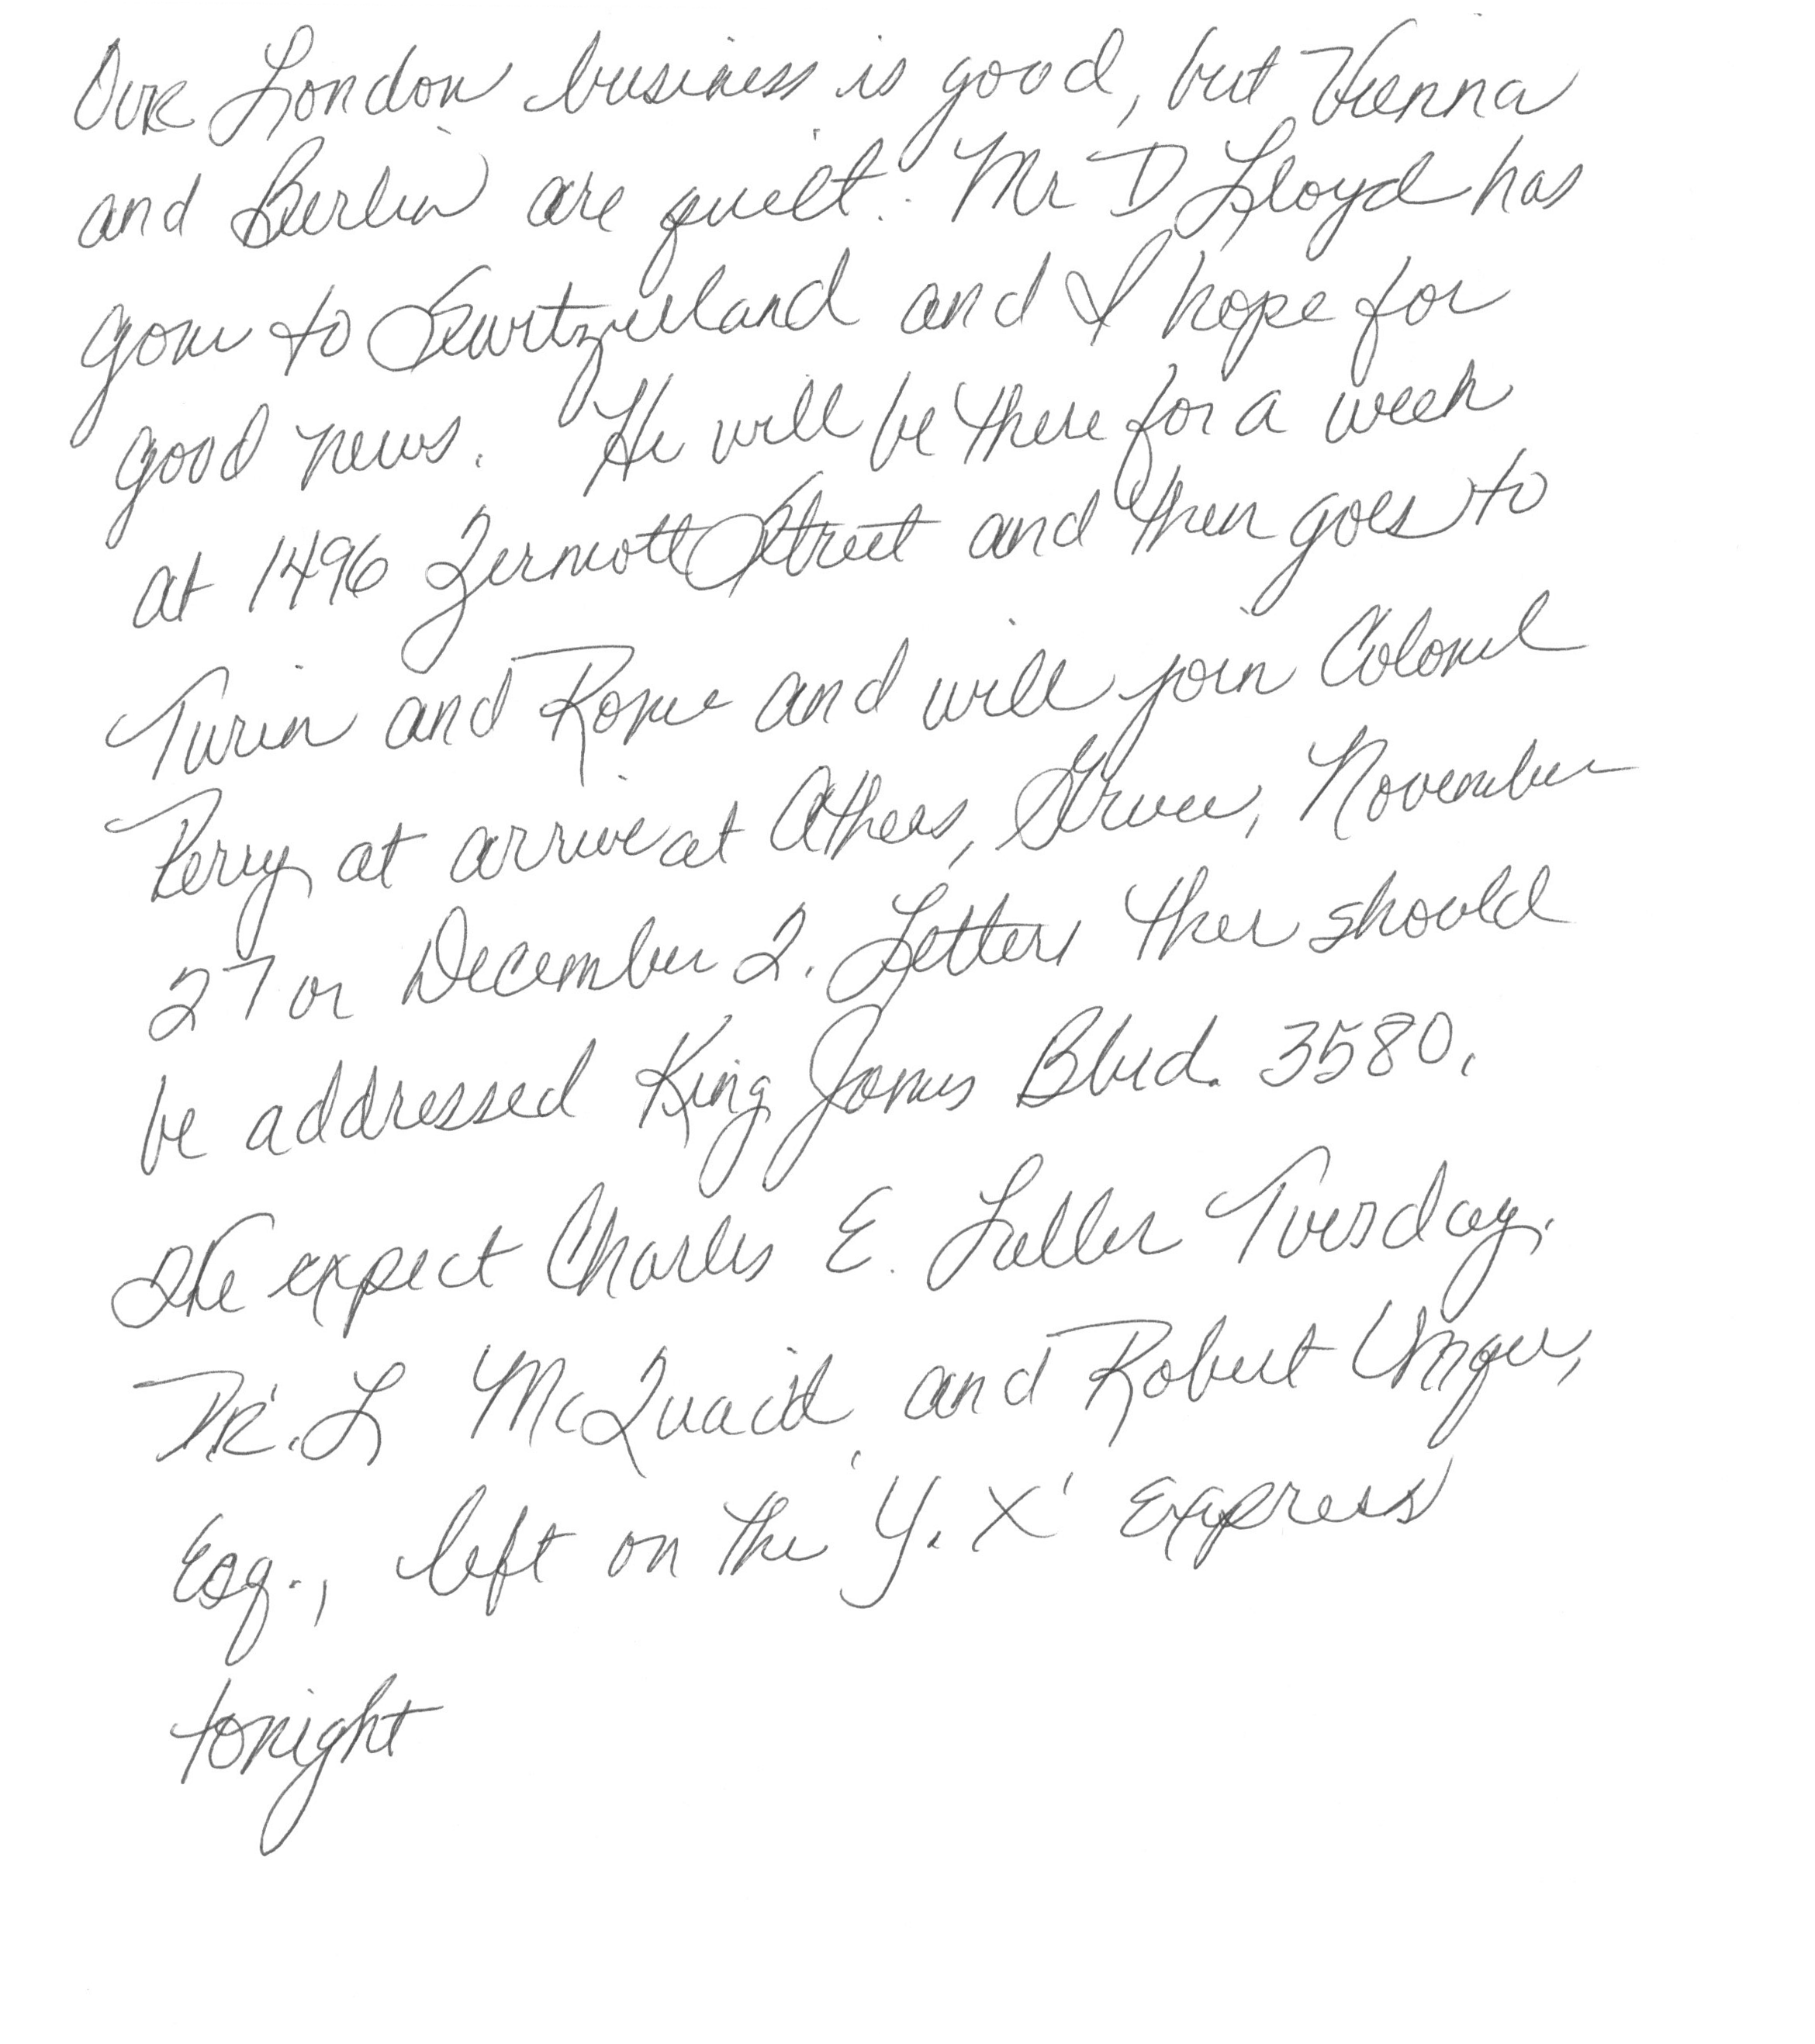 Our London business is good, but Vienna
and Berlin are quiet. Mr D Lloyd has
gone to Switzerland and I hope for
good news. He will be there for a week
at 1496 Zermott Street and then goes to
Turin and Rome and will join Colonel
Perry at arrive at Athens, Greece, November
27 or December 2. Letters ther should
be addressed King James Blvd. 3580.
We expect Charles E. Fuller Tuesday.
Dr. L McQuaid, and Robert Unger,
Esq., left on the 'Y. X' Express
tonight